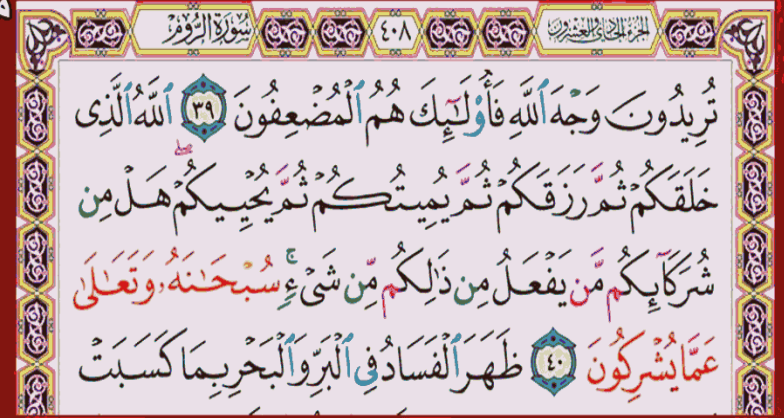 الجزء الحادي والعشرون ٤٠٨ سُورَةُ الرُّومِ
تُرِيدُونَ وَجْهَ ٱللَّهِ فَأُوْلَـٰٓئِكَ هُمُ ٱلْمُضْعِفُونَ ٣٩ ٱللَّهُ ٱلَّذِى
خَلَقَكُمْ ثُمَّ رَزَقَكُمْ ثُمَّ يُمِيتُكُمْ ثُمَّ يُحْيِيكُمْ ۖ هَلْ مِن
شُرَكَآئِكُم مَّن يَفْعَلُ مِن ذَٰلِكُم مِّن شَىْءٍ ۚ سُبْحَـٰنَهُۥ وَتَعَـٰلَىٰ
عَمَّا يُشْرِكُونَ ٤٠ ظَهَرَ ٱلْفَسَادُ فِى ٱلْبَرِّ وَٱلْبَحْرِ بِمَا كَسَبَتْ